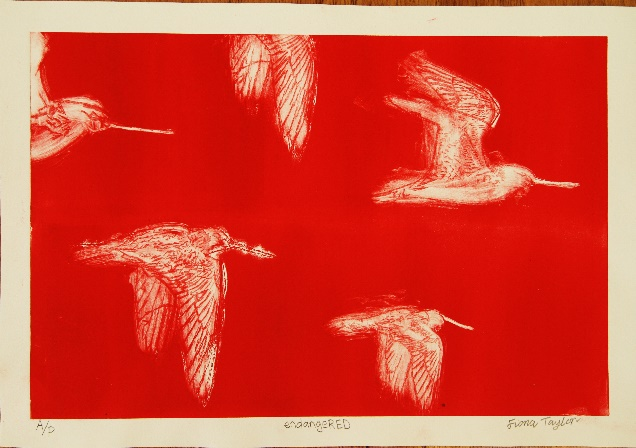 A/P
endangeRED
Fiona Taylor